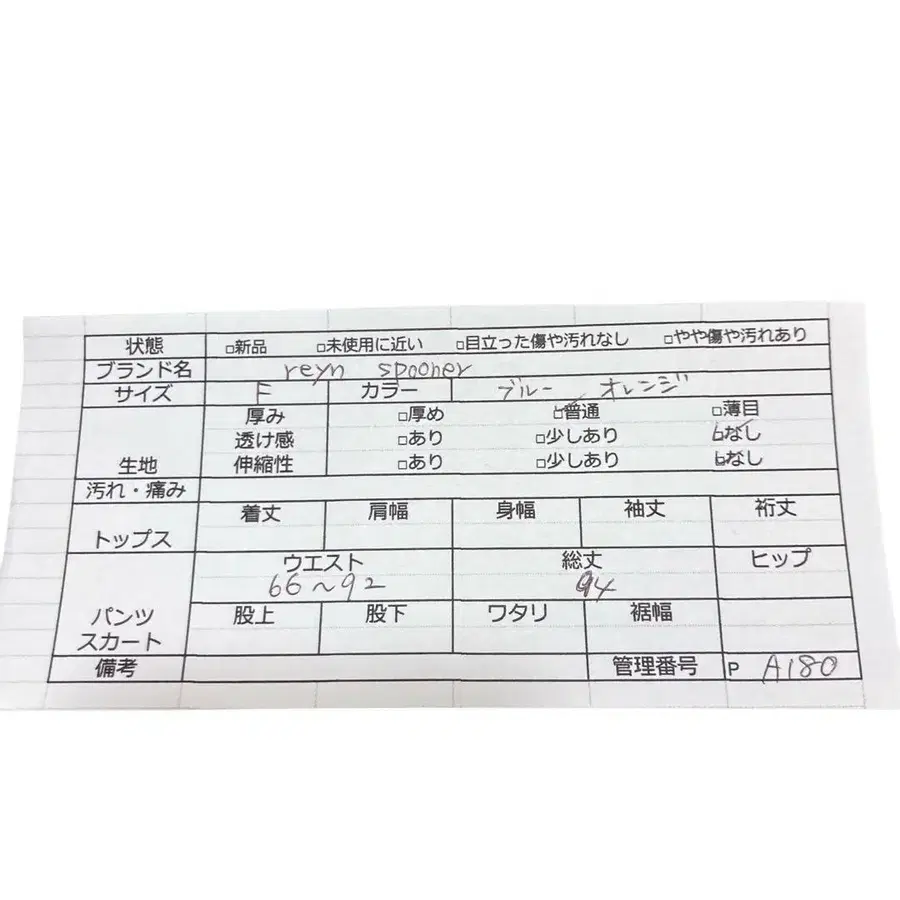 状態 □新品 □未使用に近い □目立った傷や汚れなし □やや傷や汚れあり
ブランド名 reyn spooner
サイズ F カラー ブルー オレンジ
厚み □厚め □普通 □薄目
透け感 □あり □少しあり □なし
生地 伸縮性 □あり □少しあり □なし
汚れ・痛み
着丈 肩幅 身幅 袖丈 裄丈
トップス
ウエスト 総丈 ヒップ
66～92 94
股上 股下 ワタリ 裾幅
パンツ
スカート
備考 管理番号 P A180